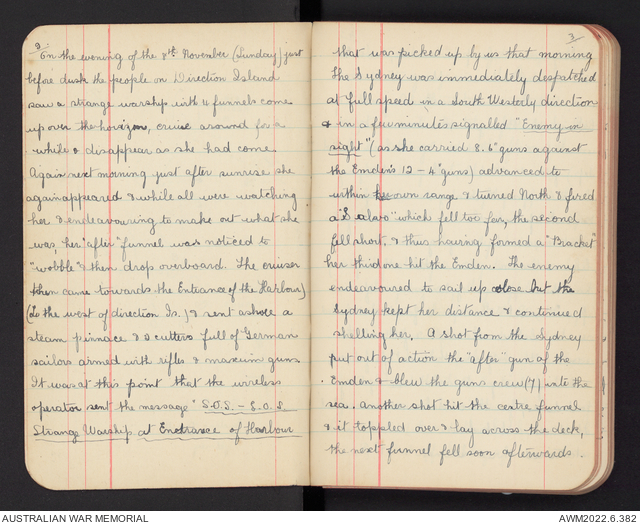 2
On the evening of the 8th November (Sunday) just
before dusk the people on Direction Island
saw a strange warship with 4 funnels come
up over the horizon, cruise around for a
while & disappear as she had come.
Again next morning just after sunrise she
again appeared & while all were watching
her & endeavouring to make out what she
was, her "after" funnel was noticed to
"wobble" & then drop overboard. The cruiser
then came towards the Entrance of the Harbour)
(To the west of direction Is.) & sent ashore a
steam pinnace & 2 cutters full of German
sailors armed with rifles & maxim guns.
It was at this point that the wireless
operator sent the message "S.O.S. – S.O.S.
Strange Warship at Entrance of Harbour
3
that was picked up by us that morning
The Sydney was immediately despatched
at full speed in a South Westerly direction
& in a few minutes signalled "Enemy in
sight" (as she carried 8.6" guns against
the Emden's 12 - 4" guns) advanced to
within her own range & turned North & fired
a "Salvo" which fell too far, the second
fell short. & thus having formed a "Bracket"
her third one hit the Emden. The enemy
endeavoured to sail up close but the
Sydney kept her distance & continued
shelling her. A shot from the Sydney
put out of action the "after" gun of the
Emden & blew the guns crew (7) into the
sea. another shot hit the centre funnel
& it toppled over & lay across the deck,
the next funnel fell soon afterwards.
AUSTRALIAN WAR MEMORIAL
AWM2022.6.382